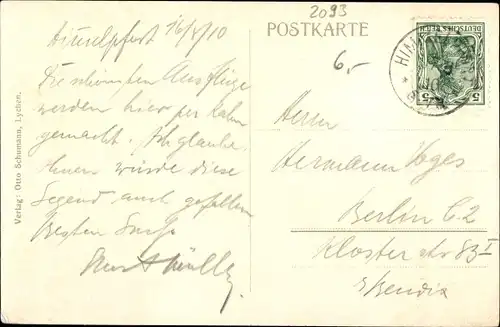 2093
POSTKARTE
Himmelpfort 16/8/10
6.-
HIMM
DEUTSCHES REICH
5 5
Die schönsten Ausflüge
werden hier per Kahn
gemacht. Ich glaube
Ihnen würde diese
Gegend auch gefallen
Besten Gruß
Müller
Herrn
Hermann Voges
Berlin C.2
Kloster str 83 I
Verlag: Otto Schumann, Lychen.